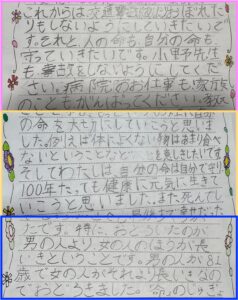 これからは交通事
りもしないようにしていきたいで
す。それと人の命も、自分の命も
守っていきたいです。小野先生
も事故をしないようにしてくださ
い。病院のお仕事も家族
のこともがんばってください。
の命を大切にしていこうと思いま
した。例えば体によくない物はあまり食べ
ないということなど
そしてわたしは、自分の命は自分で守り
100年たっても健康に元気に生きて
いこうと思いました。また、死んで
たです。特に、おどろいたのが
男の人より、女の人のほうが長
いきということです。男の人が81
歳で女の人がそれより長いきなの
でおどろきました。命のじゅぎょ